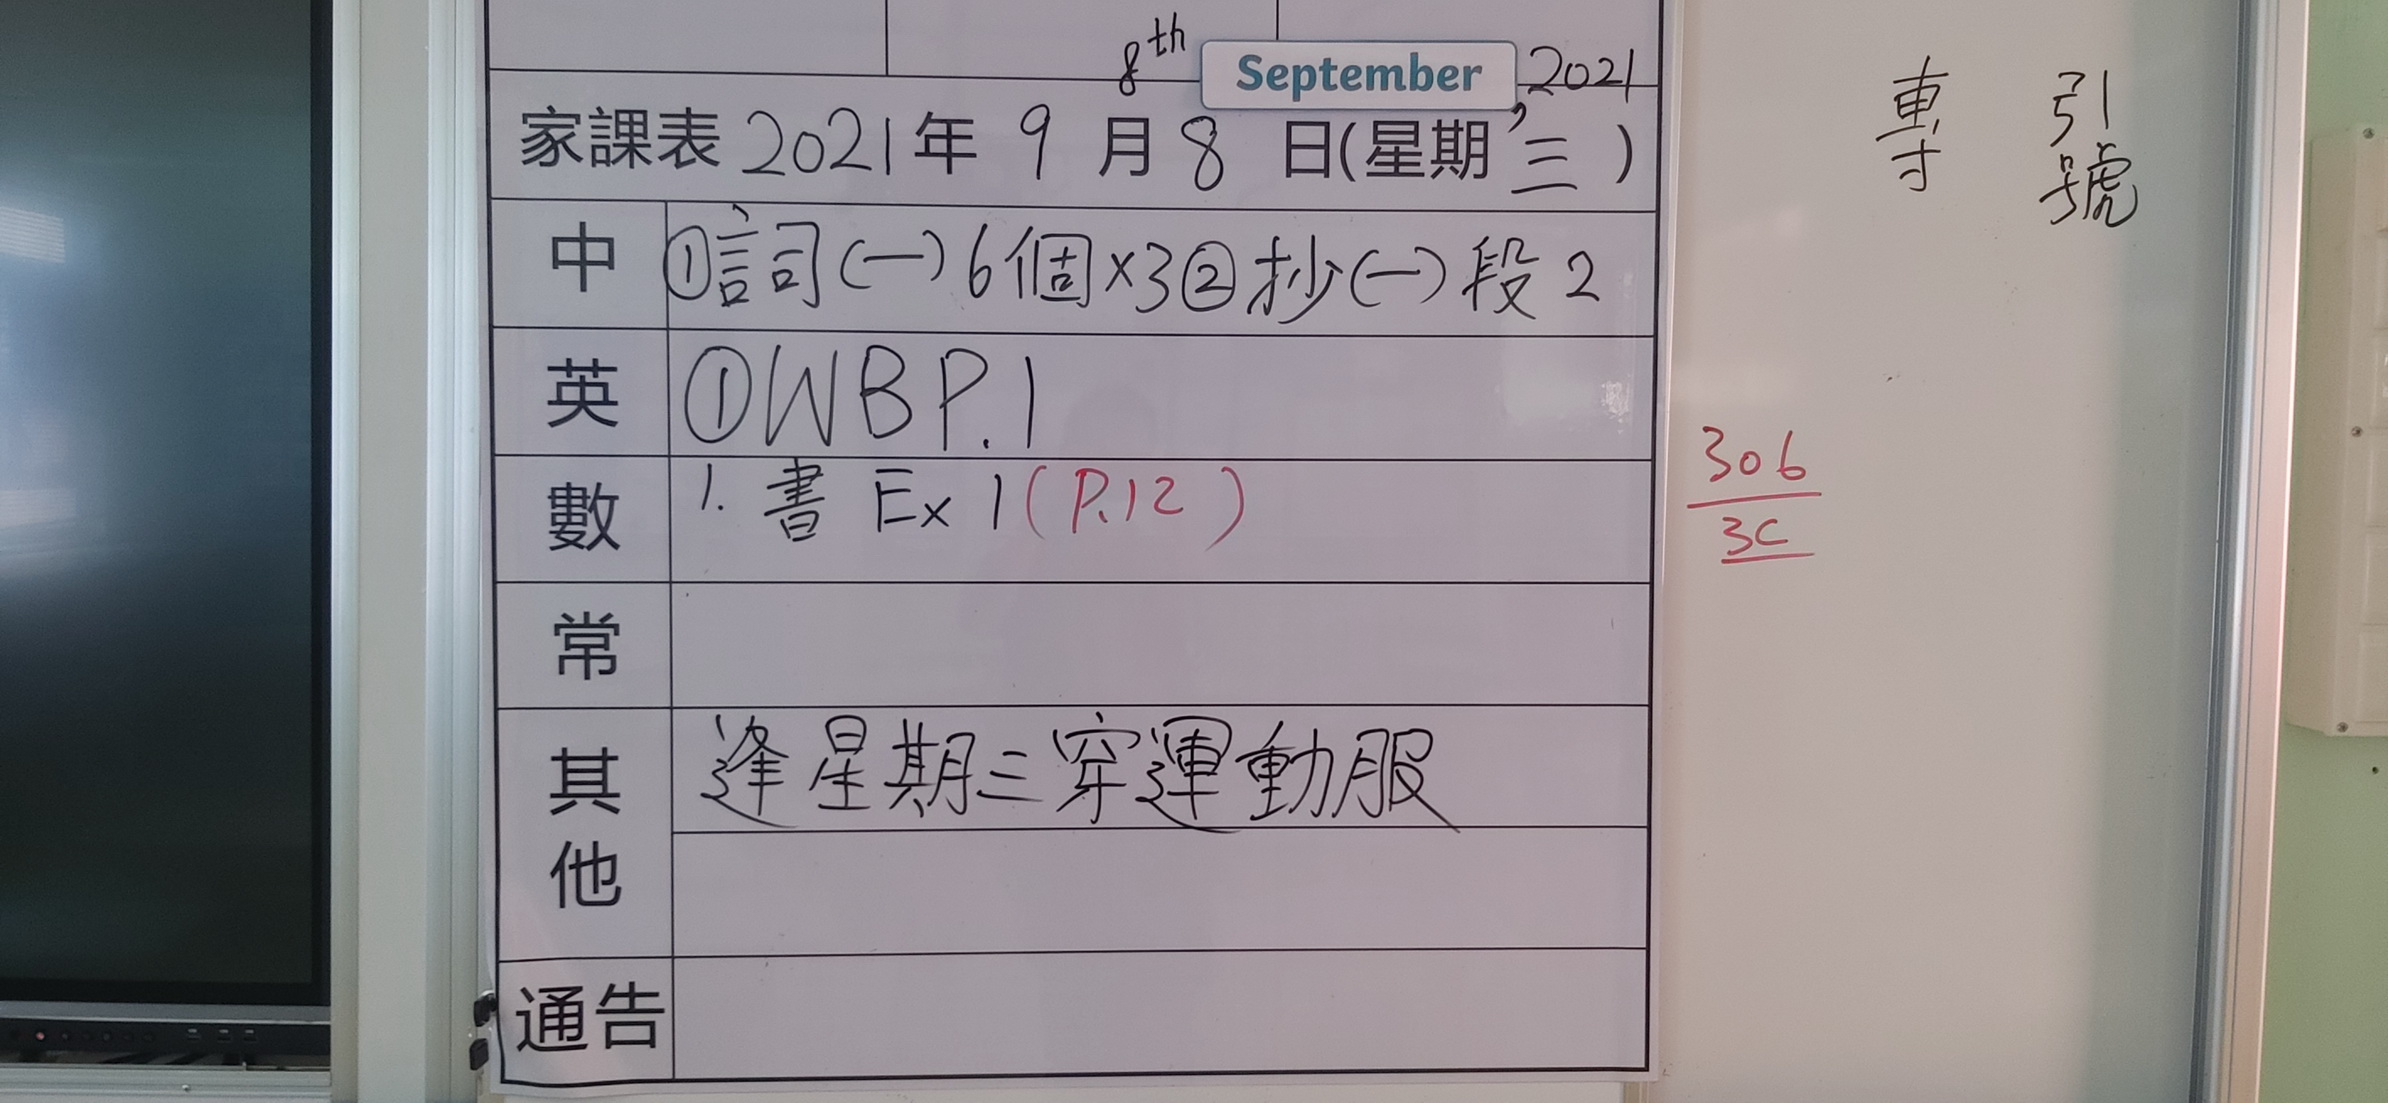 8th September, 2021
家課表 2021年 9 月 8 日(星期三)
中 ①詞(一)6個×3②抄(一)段2
英 ①WB P.1
數 1. 書 Ex 1 (P.12)
常
其他 逢星期三穿運動服
通告
專
引號
306
3C